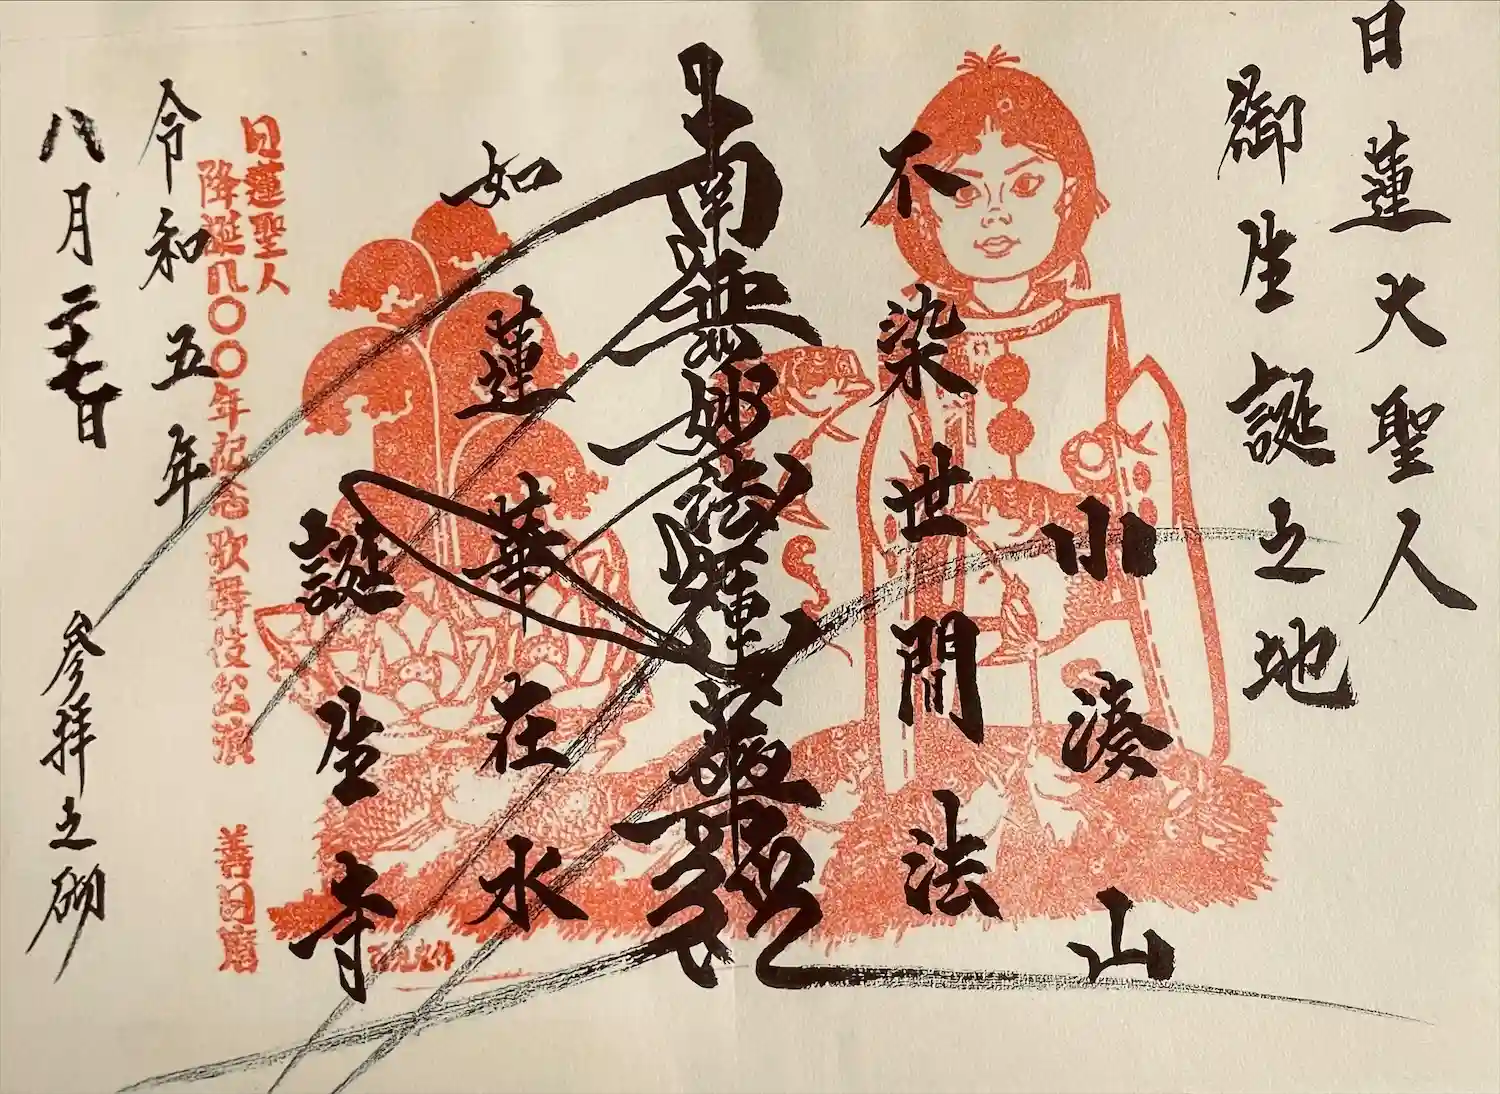 日蓮大聖人
御生誕之地
小湊山
不染世間法
南無妙法蓮華経
如蓮華在水
誕生寺
日蓮聖人
降誕八〇〇年記念歌舞伎公演
令和五年
八月二十七日
参拝之砌